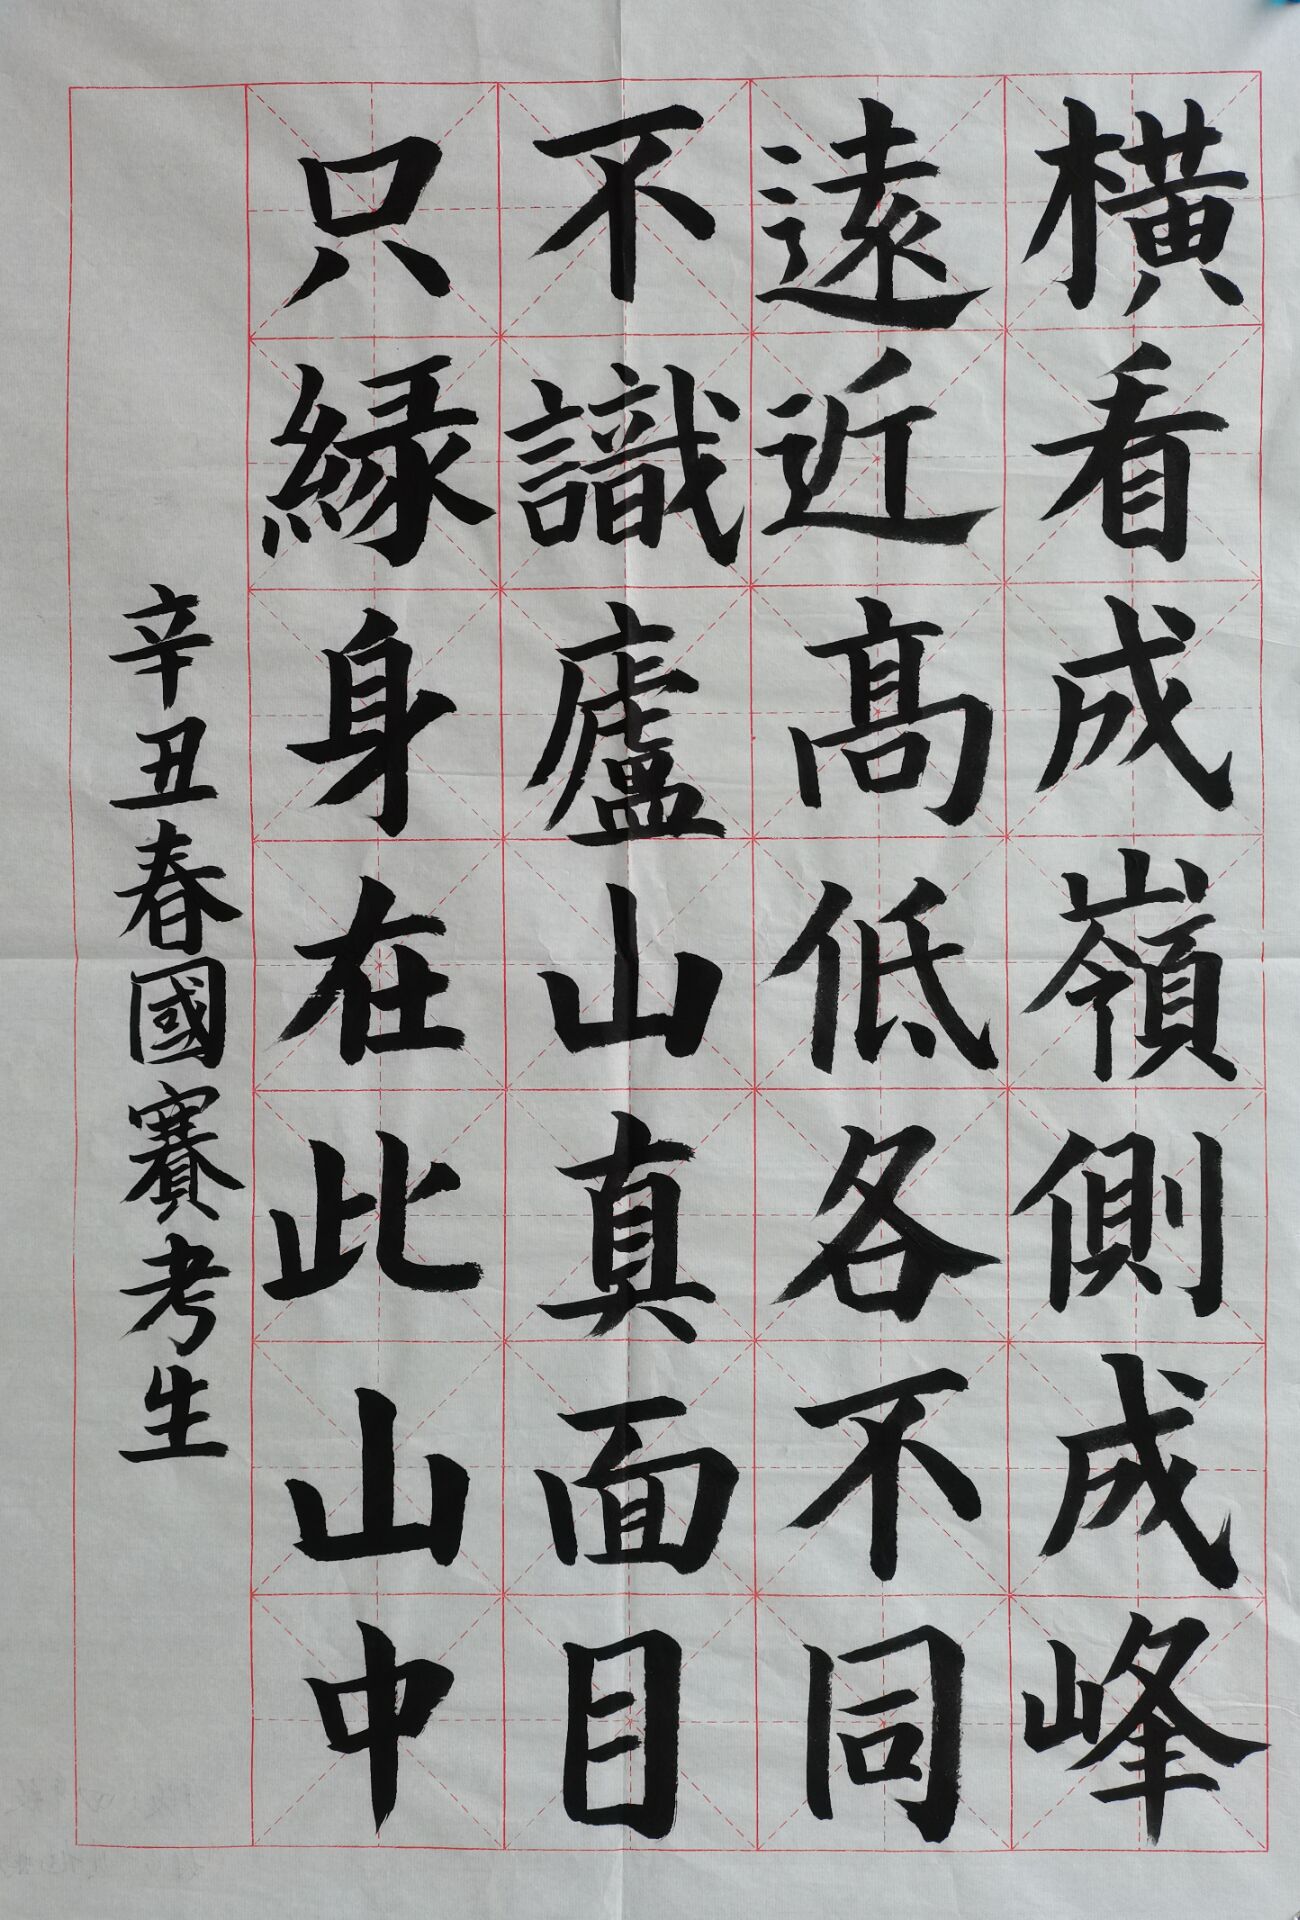 橫看成嶺側成峰
遠近高低各不同
不識廬山真面目
只緣身在此山中
辛丑春國賽考生